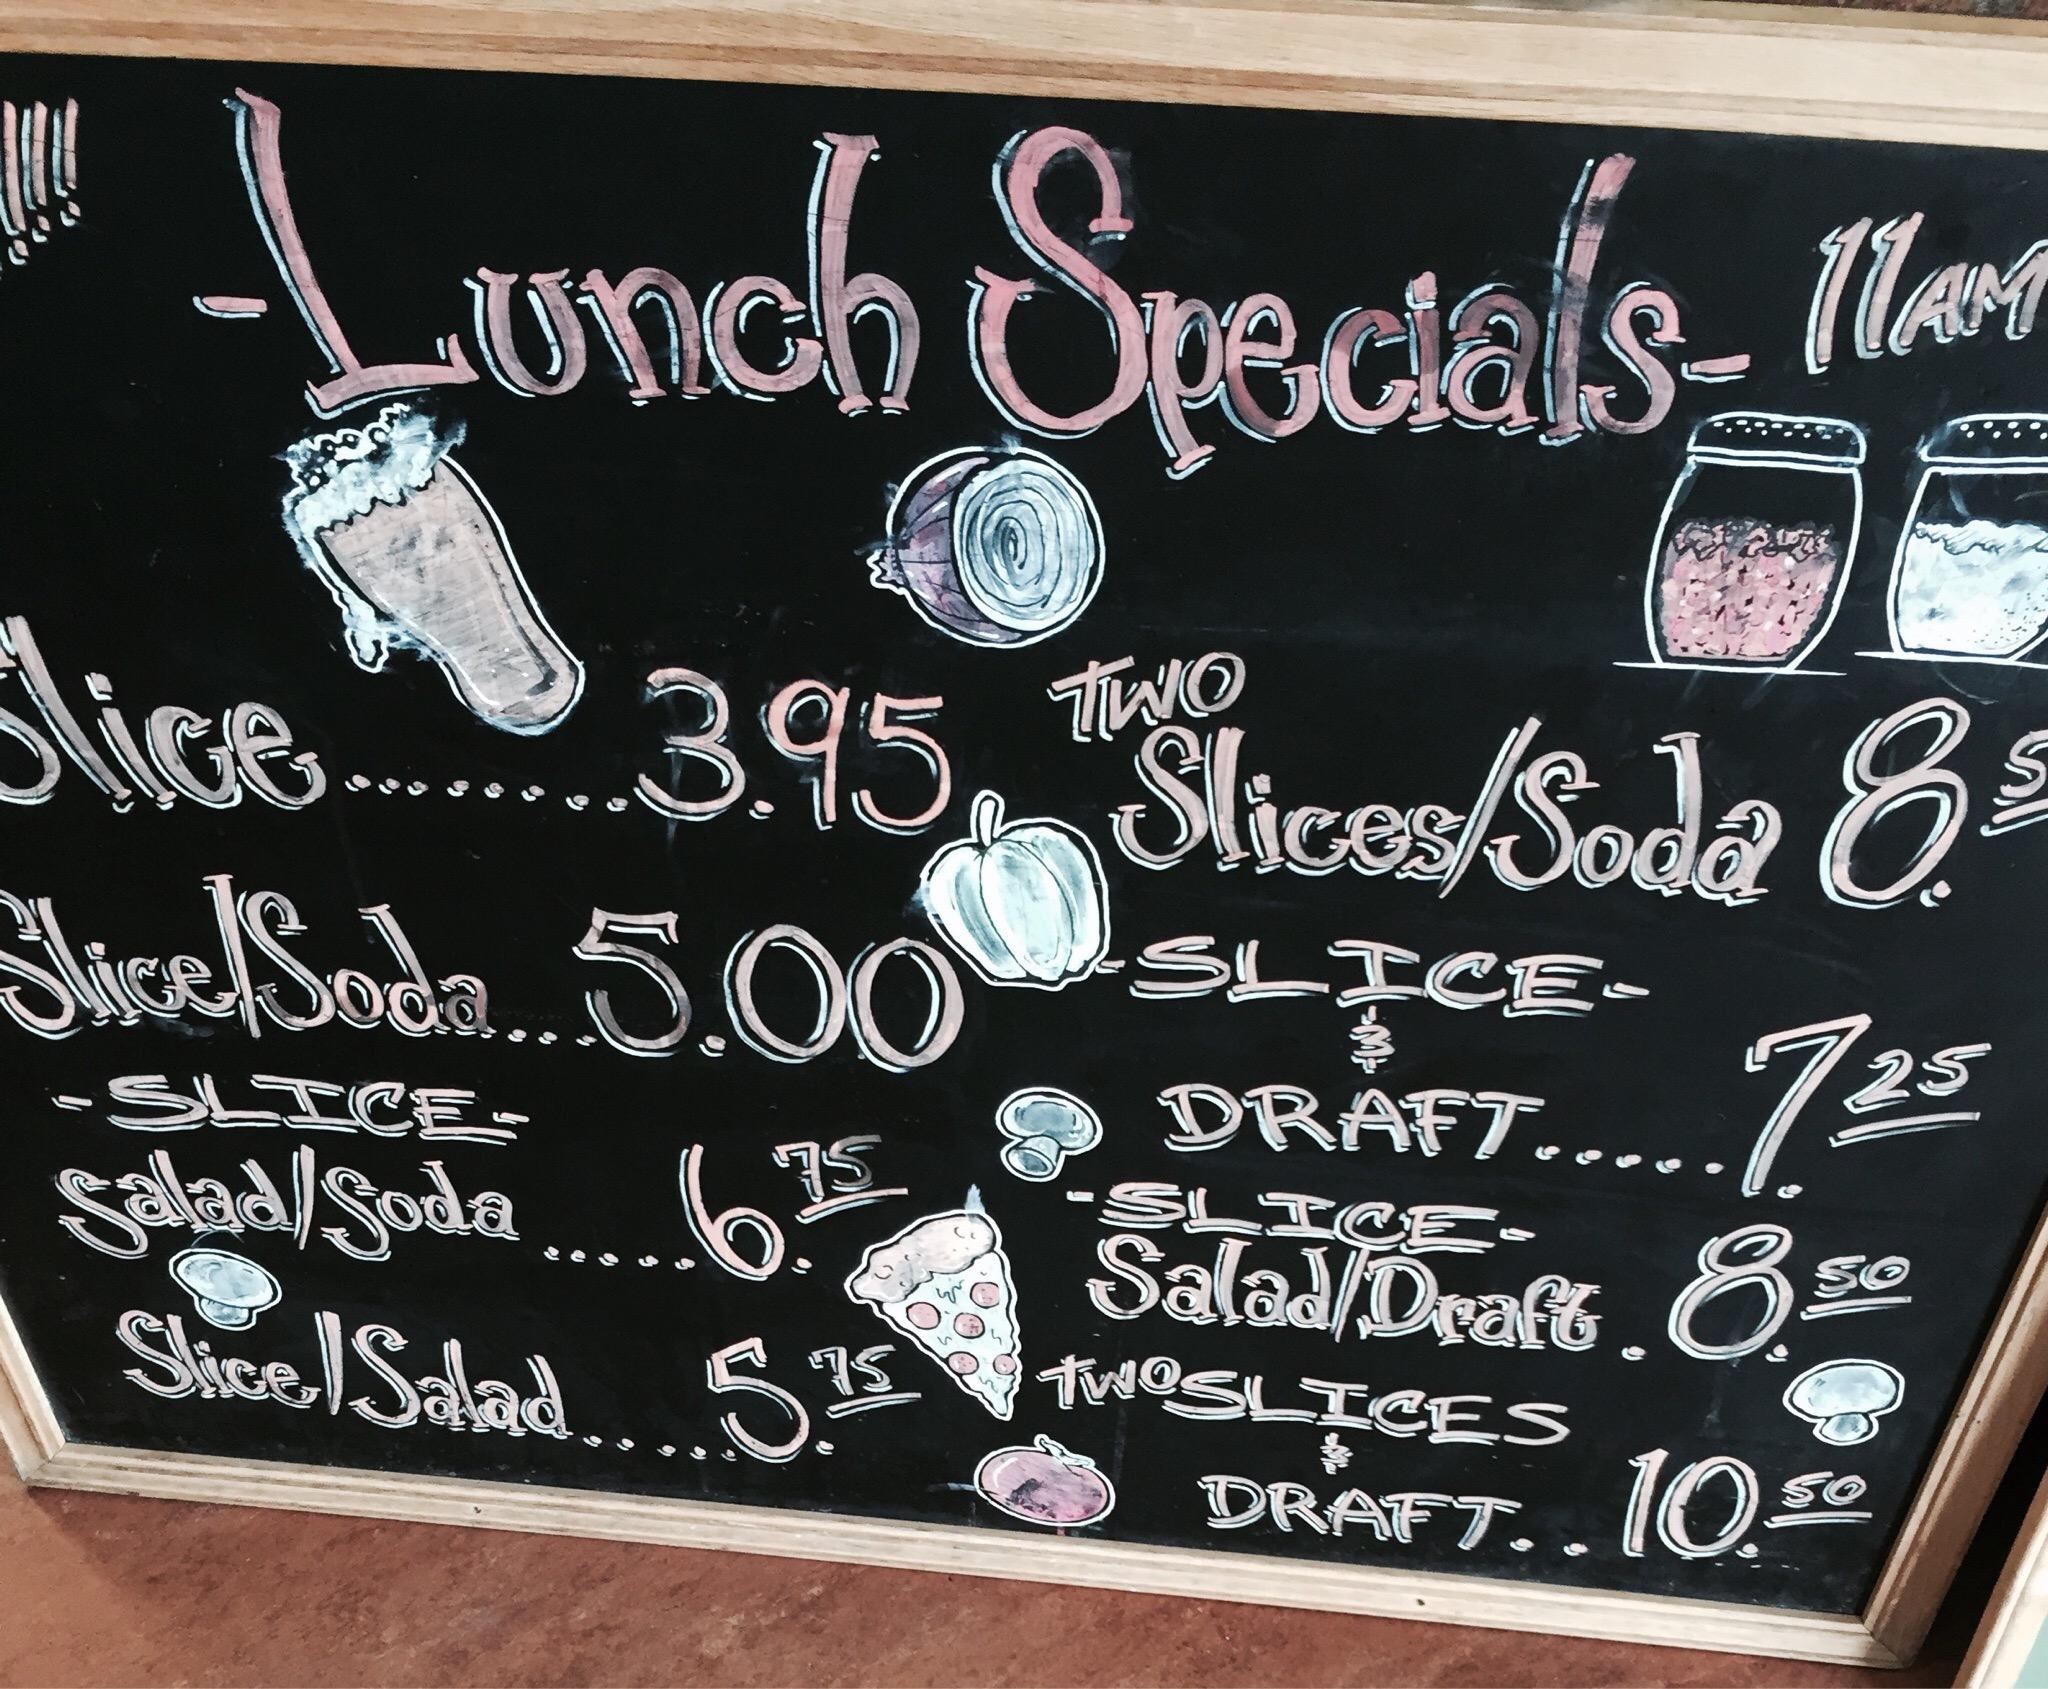 !!!!
-Lunch Specials- 11AM
Slice........3.95
Slice/Soda....5.00
-SLICE-
Salad/Soda.....6.75
Slice/Salad.....5.75
TWO
Slices/Soda 8.
-SLICE-
&
DRAFT.....7.25
-SLICE-
Salad/Draft.8.50
TWO SLICES
&
DRAFT..10.50